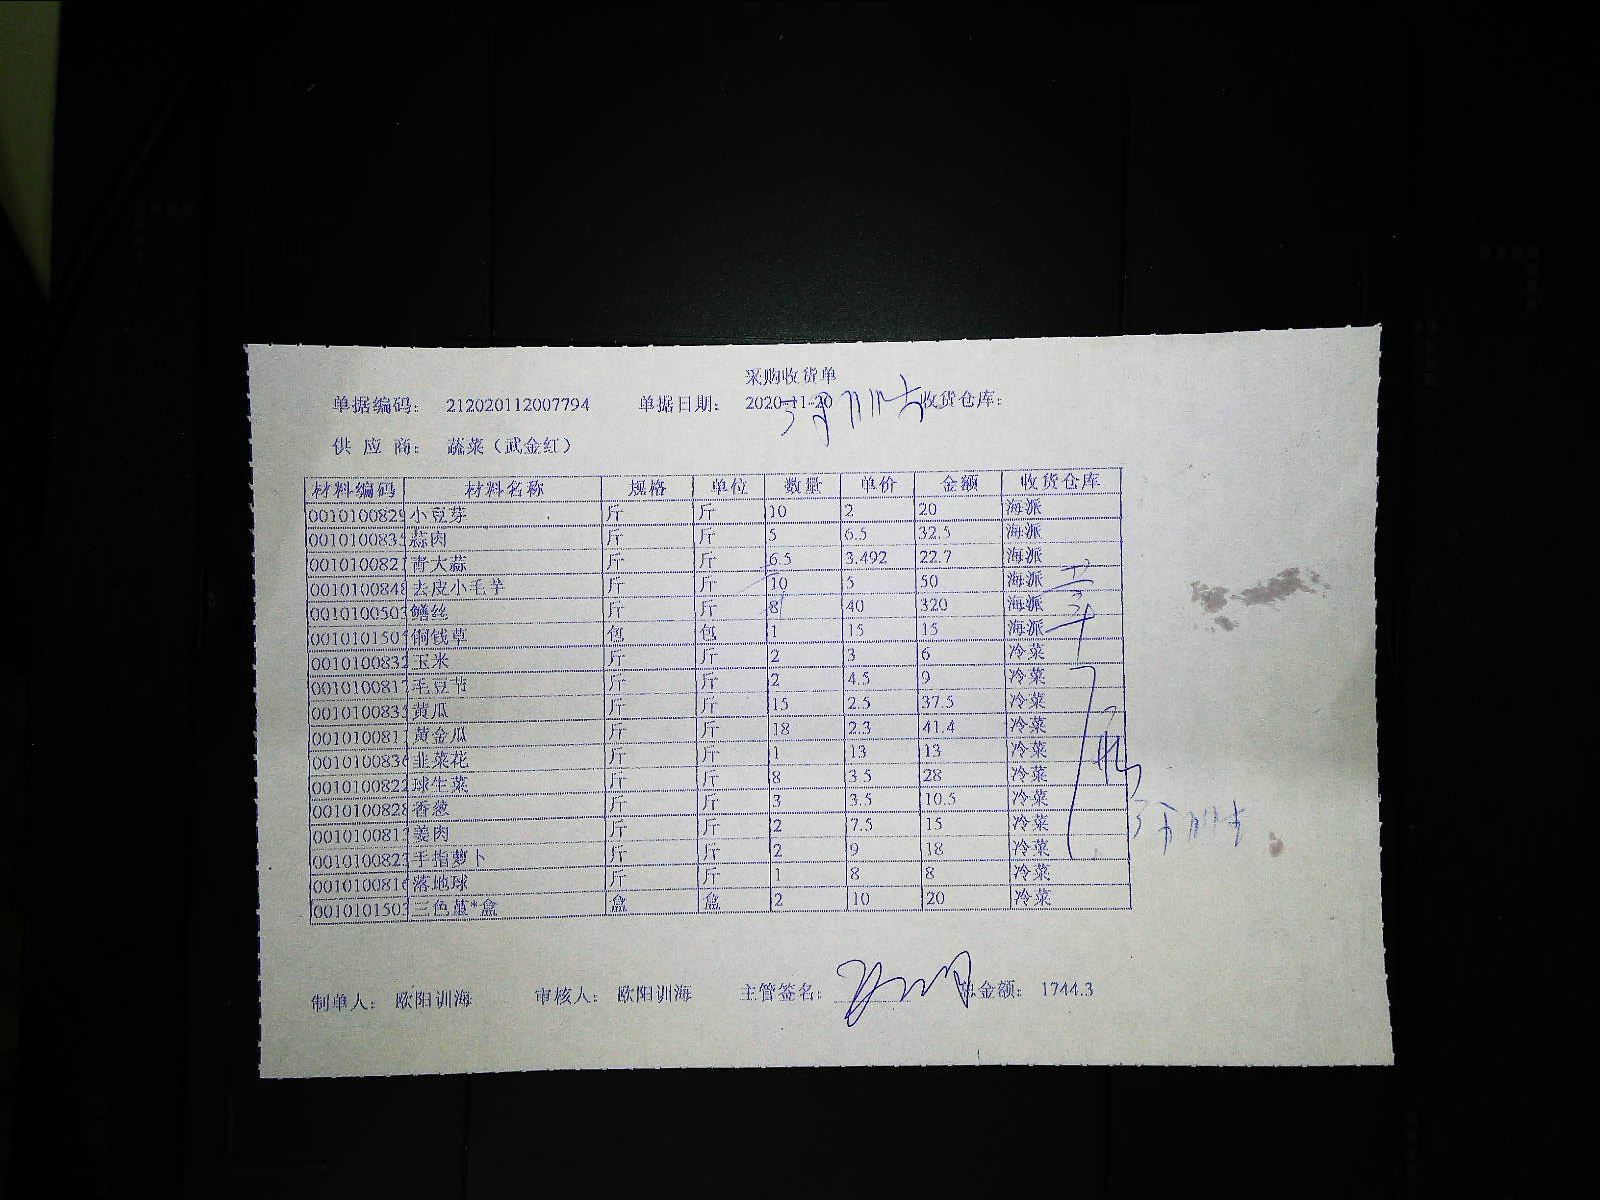 采购收货单
单据编码: 212020112007794 单据日期: 2020-11-20 收货仓库:
供应商: 蔬菜（武金红）
材料编码 材料名称 规格 单位 数量 单价 金额 收货仓库
0010100829 小豆芽 斤 斤 10 2 20 海派
001010083 蒜肉 斤 斤 5 6.5 32.5 海派
001010082 青大蒜 斤 斤 6.5 3.492 22.7 海派
001010084 去皮小毛芋 斤 斤 10 5 50 海派
001010050 鳝丝 斤 斤 8 40 320 海派
001010150 铜钱草 包 包 1 15 15 海派
0010100832 玉米 斤 斤 2 3 6 冷菜
001010081 毛豆节 斤 斤 2 4.5 9 冷菜
001010083 黄瓜 斤 斤 15 2.5 37.5 冷菜
001010081 黄金瓜 斤 斤 18 2.3 41.4 冷菜
001010083 韭菜花 斤 斤 1 13 13 冷菜
0010100822 球生菜 斤 斤 8 3.5 28 冷菜
0010100828 香葱 斤 斤 3 3.5 10.5 冷菜
001010081 姜肉 斤 斤 2 7.5 15 冷菜
001010082 手指萝卜 斤 斤 2 9 18 冷菜
001010081 落地球 斤 斤 1 8 8 冷菜
001010150 三色堇*盒 盒 盒 2 10 20 冷菜
制单人: 欧阳训海 审核人: 欧阳训海 主管签名: 总金额: 1744.3